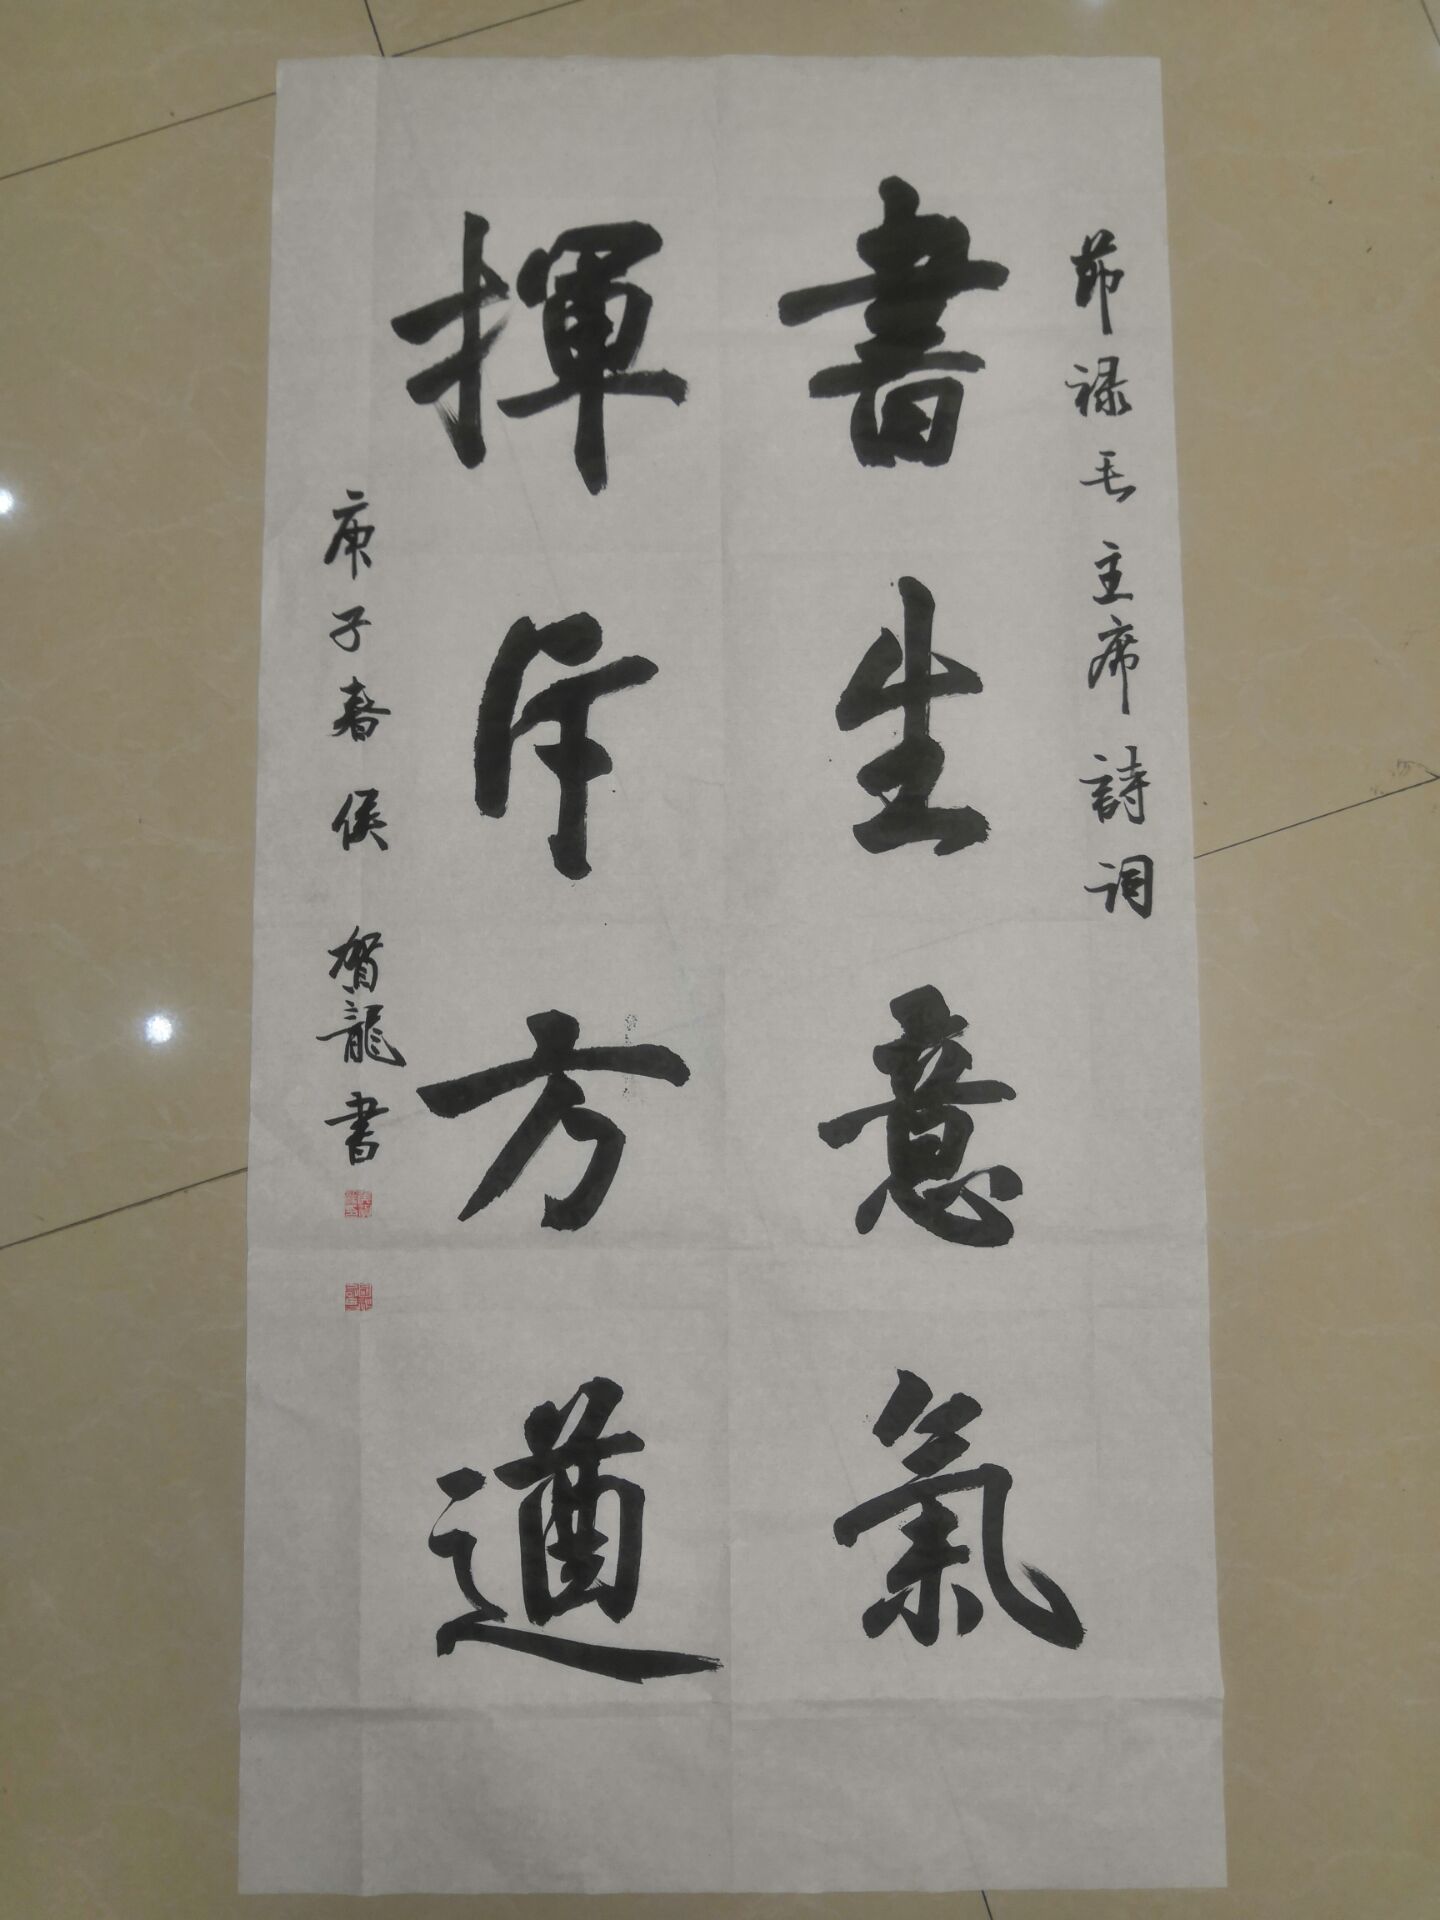 節禄毛主席詩詞
書生意氣
揮斥方遒
庚子春侯賀龍書